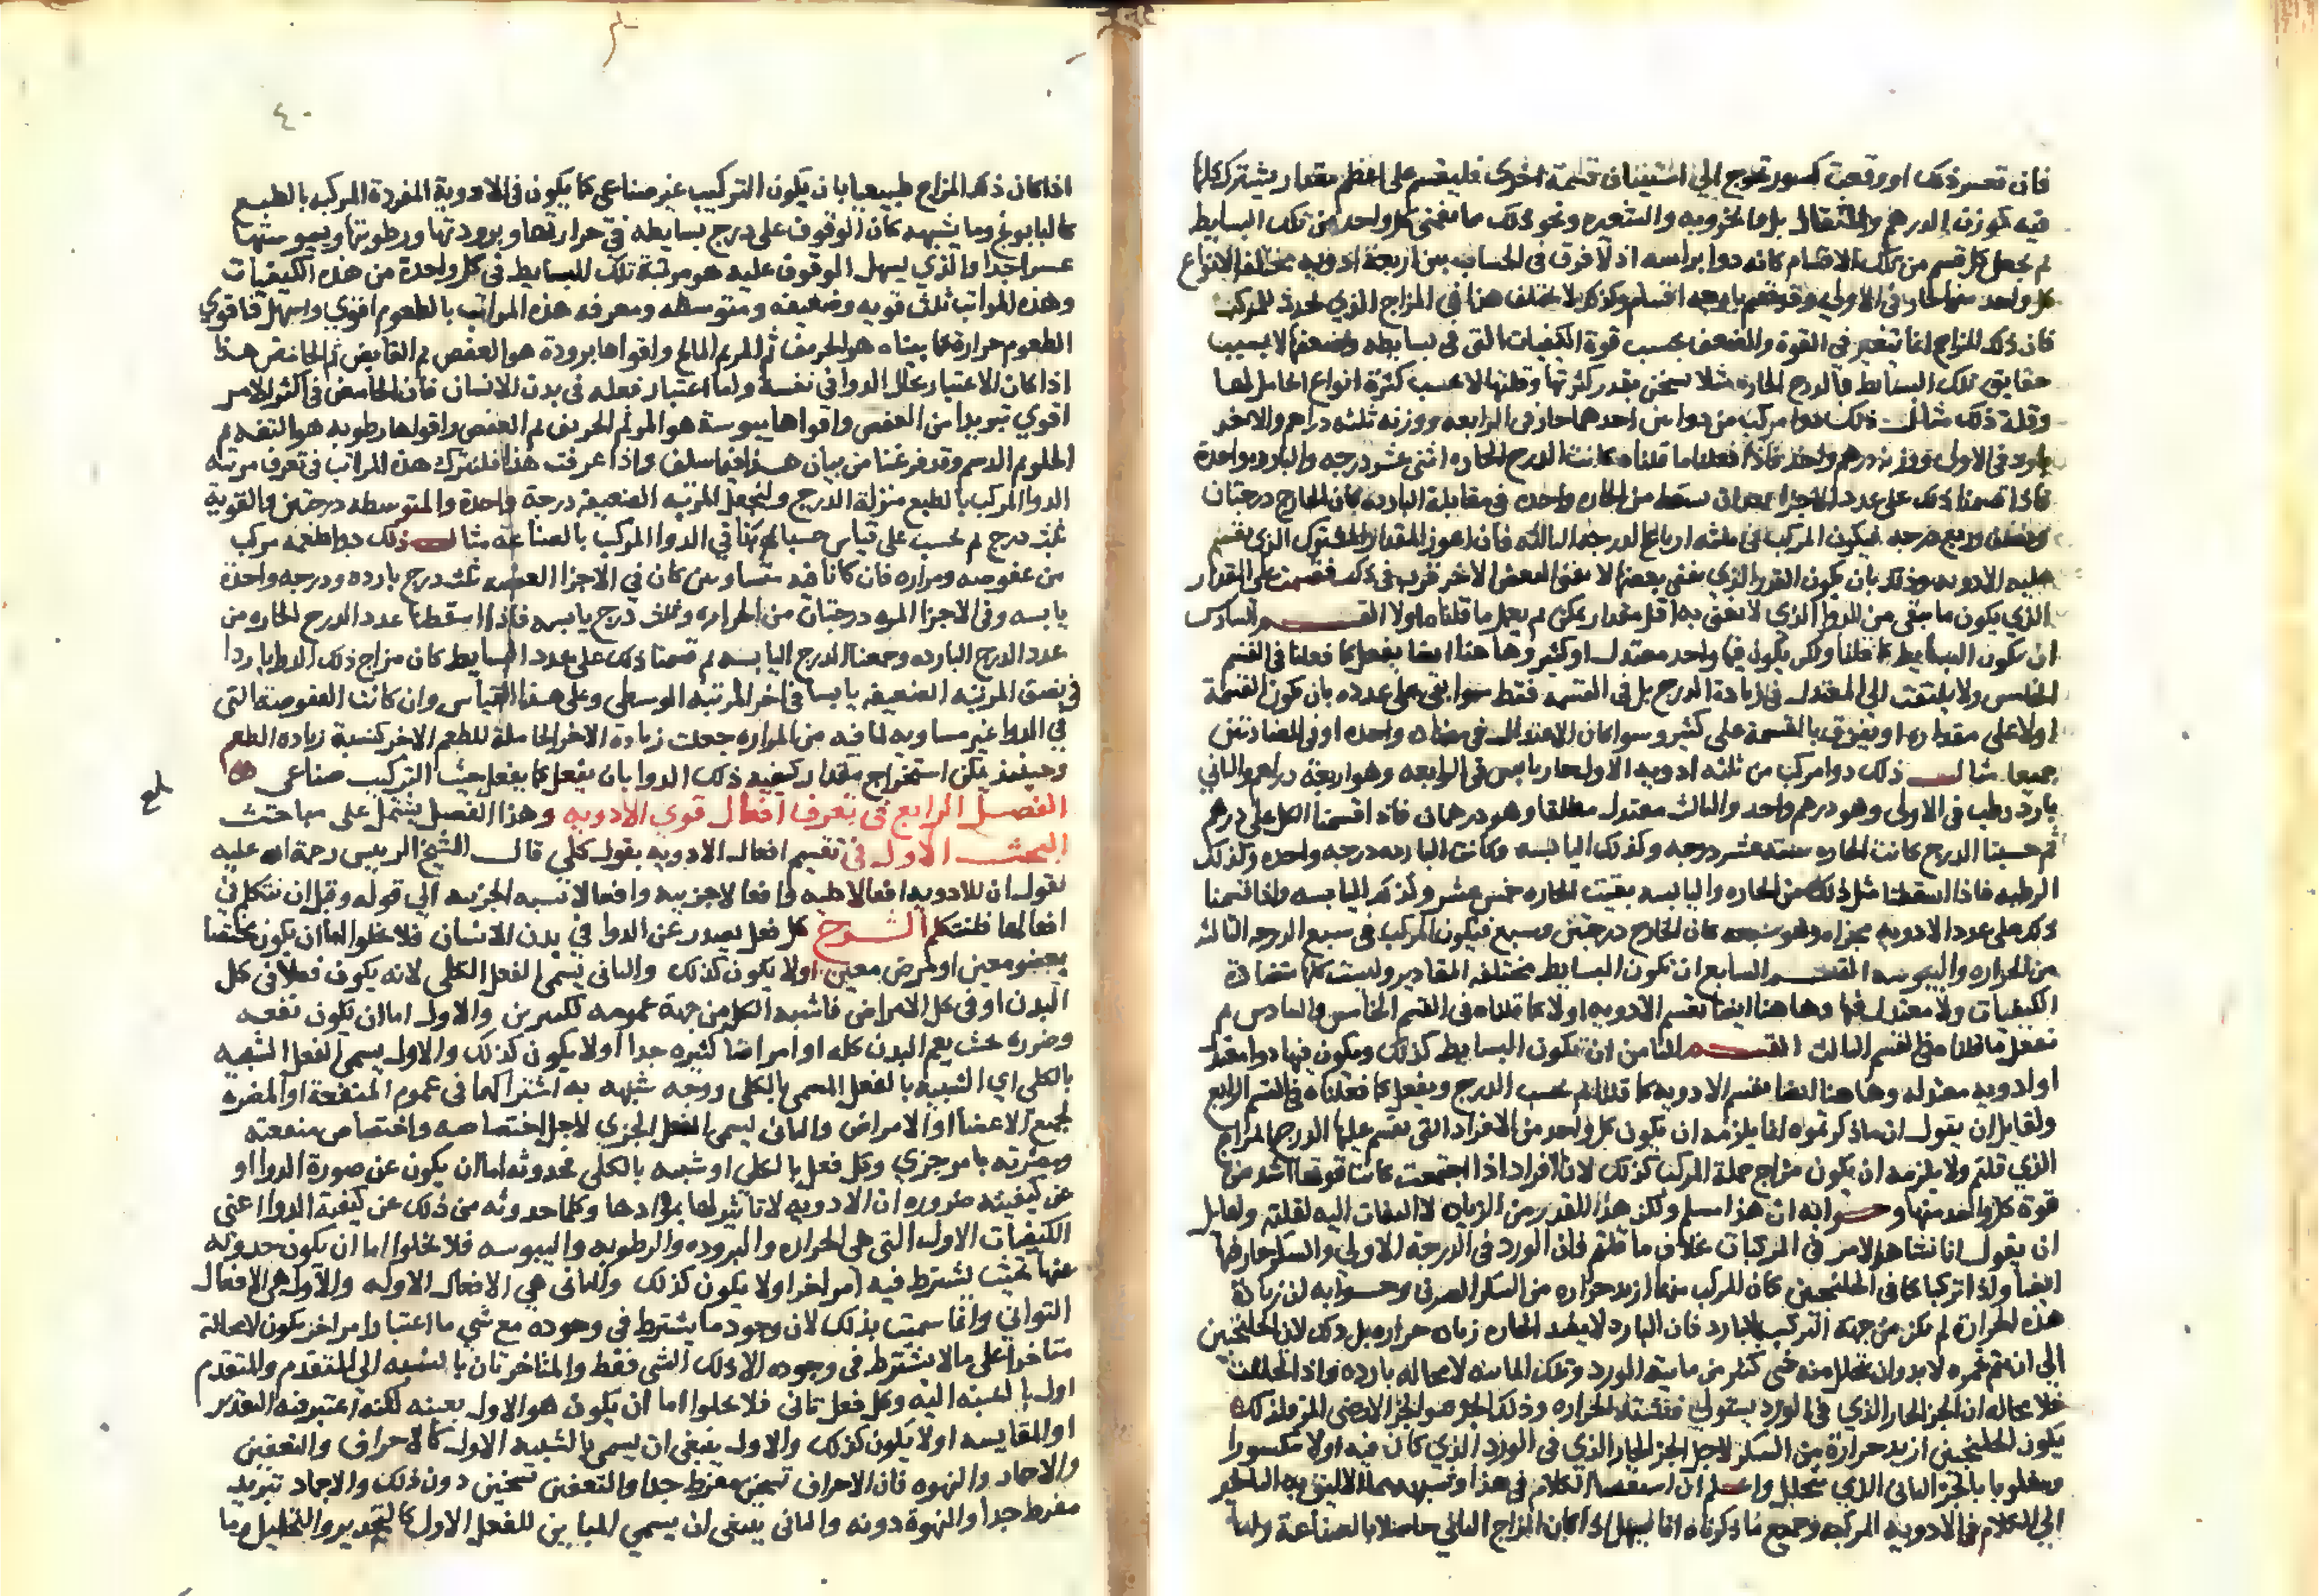 فان تعسر ذلك او وقعت كسور تحوج الي استيناف قسمة اخري فليقسم على اعظم مقدار يشترك كلها
فيه كوزن الدرهم والمثقال بل والخروبه والشعيره ونحو ذلك ما تغني كل واحد من تلك البسايط
ثم يجعل كل قسم من تلك الاقسام كانه دوا براسه اذ لا فرق في الحساب بين اربعة ادويه مختلفه الانواع
كل واحد منها حار في الاولي وقد قسم باربعه اقسام وكذلك لا يختلف هذا في المزاج الذي يحدث للمركب
فان ذلك المزاج انما تتغير في القوة والضعف بحسب قوة الكيفيات التي في بسايطه وضعفها لا بحسب
حقايق تلك البسايط فالدرج الحاره مثلا تسخن بقدر كثرتها وقلتها لا بحسب كثرة انواع الحامل لها
وقلة ذلك مثال ذلك دوا مركب من دوا من احدهما حار في الرابعه ووزنه ثلثه دراهم والاخر
بارد في الاولى ووزنه درهم واحد فاذا فعلنا ما قلناه كانت الدرج الحاره اثني عشر درجه والبارده واحدة
فاذا قسمنا ذلك على عدد الاجزا بعد ان سقط من الحاره واحده في مقابلة البارده كان الخارج درجتان
ونصف وربع درجه فيكون المركب في ثلثه ارباع الدرجه الثالثه فان اعوز المقدار المشترك الذي يقسم
عليه الادويه وذلك بان يكون القدر الذي يفني بعضها لا يفني البعض الاخر قربه في ذلك فقسمت على المقدار
الذي يكون ما يبقى من الدوا الذي لا يفني به اقل مقدار يمكن ثم يعمل ما قلناه اولا القسم السادس
ان تكون البسايط كما قلنا ولكن يكون فيها واحد معتدل او كثير وها هنا ايضا يفعل كما فعلنا في القسم
الخامس ولا يلتفت الي المعتدل في زيادة الدرج بل في القسمه فقط سوا بقي على عدده بان تكون القسمة
اولا على مقداره او تفرق بالقسمة على كثير وسوا كان الاعتدال في مضاده واحده او في المضادتين
جميعا مثال ذلك دوا مركب من ثلثه ادويه الاول حار يابس في الرابعه وهو اربعة دراهم والثاني
بارد رطب في الاولى وهو درهم واحد والثالث معتدل مطلقا وهو درهمان فاذا قسمنا الكل على درهم
ثم حسبنا الدرج كانت الحاره ستة عشر درجه وكذلك اليابسه وكانت البارده درجه واحده وكذلك
الرطبه فاذا اسقطنا مثل ذلك من الحاره واليابسه بقيت الحاره خمس عشر وكذلك اليابسه واذا قسمنا
ذلك على عدد الادويه مجزاه وهو سبعه كان الخارج درجتين وسبع فيكون المركب في سبع الدرجه الثالثه
من الحراره واليبوسه القسم السابع ان تكون البسايط مختلفه المقادير وليست كلها متضادة
الكيفيات ولا معتدل فيها وها هنا ايضا تقسم الادويه اولا كما قلناه في القسم الخامس والسادس ثم
تفعل ما قلناه في القسم الثالث القسم الثامن ان تكون البسايط كذلك ويكون فيها دوا معتدل
او ادويه معتدله وها هنا ايضا يقسم الادويه كما قلنا ثم بحسب الدرج ويفعل كما فعلناه في القسم الرابع
ولقايل ان يقول ان ما ذكرتموه انما يلزمه ان يكون كل واحد من الافراد التي تقسم عليها الدرج المزاج
الذي قلتم ولا يلزمه ان يكون مزاج جملة المركب كذلك لان الافراد اذا اجتمعت كانت قوتها اشد من
قوة كل واحد منها وجوابه ان هذا مسلم ولكن هذا القدر من الزياده لا التفات اليه لقلته ولقايل
ان يقول انا نشاهد الامر في المركبات بخلاف ما قلتم فان الورد في الدرجة الاولي والسكر حار فيها
ايضا واذا تركبا كما في الجلنجبين كان المركب منهما ازيد حراره من السكر الصرف وجوابه ان زيادة
هذه الحرارة لم تكن من جهة التركيب بالبارد فان البارد لا يفيد الحاره زياده حراره بل ذلك لان الجلنجبين
الي ان يتم تخمره لا بد وان يتحلل منه شي كثير من مايية الورد وتلك الماييه لا محاله بارده واذا تحللت
فلا محاله ان الجز الحار الذي في الورد يستولي فتشتد الحراره وذلك الجز هو الجز الارضي المر فلذلك
يكون الجلنجبين ازيد حرارة من السكر لاجل الجز الحار الذي في الورد الذي كان فيه اولا مكسورا
ومغلوبا بالجز المائي الذي تحلل واعلم ان استقصا الكلام في هذا وشبهه مما الاليق به
الي الكلام في الادويه المركبه وجميع ما ذكرناه انما يسهل اذا كان المزاج الثاني حاصلا بالصناعة واما
٤٠
اذا كان ذلك المزاج طبيعيا بان يكون التركيب غير صناعي كما يكون في الادوية المفردة المركبه بالطبع
كالبابونج وما يشبهه كان الوقوف على درج بسايطه في حرارتها وبرودتها ورطوبتها ويبوستها
عسرا جدا والذي يسهل الوقوف عليه هو مرتبة تلك البسايط في كل واحدة من هذه الكيفيات
وهذه المراتب ثلث قويه وضعيفه ومتوسطه ومعرفه هذه المراتب بالطعوم اقوي واسهل فاقوي
الطعوم حرارة كما بيناه هو الحريف ثم المر ثم المالح واقواها برودة هو العفص ثم القابض ثم الحامض هذا
اذا كان الاعتبار بحال الدوا في نفسه واما اعتبار فعله في بدن الانسان فان الحامض في اكثر الامر
اقوي تبريدا من العفص واقواها يبوسة هو المر ثم الحريف ثم العفص واقواها رطوبه هو التفه ثم
الحلو ثم الدسم وقد فرغنا من بيان هذا فيما سلف واذا عرفت هذا فلنترك هذه المراتب في تعرف مرتبه
الدوا المركب بالطبع منزلة الدرج ولنجعل المرتبه الضعيفه درجة واحدة والمتوسطه درجتين والقوية
ثلث درج ثم نحسب على قياس حسابا في الدوا المركب بالصناعة مثال ذلك دوا طعمه مركب
من عفوصه ومراره فان كانا فيه متساويين كان في الاجزا العفصه ثلث درج بارده ودرجه واحدة
يابسه وفي الاجزا المره درجتان من الحراره وثلث درج يابسه فاذا اسقطنا عدد الدرج الحاره من
عدد الدرج البارده وجمعنا الدرج اليابسه ثم قسمنا ذلك على عدد البسايط كان مزاج ذلك الدوا باردا
في نصف المرتبه الضعيفه يابسا في اخر المرتبه الوسطي وعلى هذا القياس وان كانت العفوصه التي
في الدوا غير مساويه لما فيه من المراره جعلت زيادة الاخر الحاملة للطعم الاخر كنسبة زياده الطعم
وحينئذ يمكن استخراج مقدار كيفيه ذلك الدوا بان يفعل كما يفعل بحيث التركيب صناعي
الفصل الرابع في تعرف افعال قوي الادويه وهذا الفصل يشتمل على مباحث
البحث الاول في تقسيم افعال الادويه بقول كلي قال الشيخ الرييس رحمة الله عليه
نقول ان للادويه افعالا كليه وافعالا جزييه وافعالا تشبه الجزييه الي قوله وقبل ان نتكلم في
افعالها فلنتكلم الشرح كل فعل يصدر عن الدوا في بدن الانسان فلا يخلوا اما ان يكون مختصا
بعضو معين او لمرض معين اولا يكون كذلك والثاني يسمى الفعل الكلي لانه يكون فعلا في كل
البدن او في كل الامراض فاشبه الكل من جهة عمومه لكثيرين والاول اما ان يكون نفعه
وضرره بحيث يعم البدن كله او امراضا كثيره جدا اولا يكون كذلك والاول يسمى الفعل الشبيه
بالكلي اي الشبيه بالفعل المسمى بالكلي ووجه شبهه به اشتراكهما في عموم المنفعة او المضره
لجميع الاعضا او الامراض والثاني يسمى الفعل الجزي لاجل اختصاصه واختصاص منفعته
ومضرته بامر جزي وكل فعل بالكلي او شبيه بالكلي فحدوثه اما ان يكون عن صورة الدوا او
عن كيفيته ضروره ان الادويه لا تاثير لها بموادها وكلما حدوثه من ذلك عن كيفية الدوا اعني
الكيفيات الاول التي هي الحراره والبروده والرطوبه واليبوسه فلا يخلوا اما ان يكون حدوثه
عنها بحيث يشترط فيه امر اخر اولا يكون كذلك والثاني هي الافعال الاوله والاول هي الافعال
الثواني وانما سميت بذلك لان وجود ما يشترط في وجوده مع شي ما اعتبار امر اخر يكون لا محالة
متاخرا على ما لا يشترط في وجوده الا ذلك الشي فقط والمتاخر ثان بالنسبه الي المتقدم والمتقدم
اول بالنسبه اليه وكل فعل ثاني فلا يخلوا اما ان يكون هو الاول بعينه لكنه اعتبر فيه التقدير
او المقايسه اولا يكون كذلك والاول ينبغي ان يسمى بالشبيه الاول كالاحراق والتعفين
والاجماد والنهوه فان الاحراق تسخين مفرط جدا والتعفين تسخين دون ذلك والاجماد تبريد
مفرط جدا والنهوة دونه والثاني ينبغي ان يسمي المباين للفعل الاول كالتخدير والتحليل وما